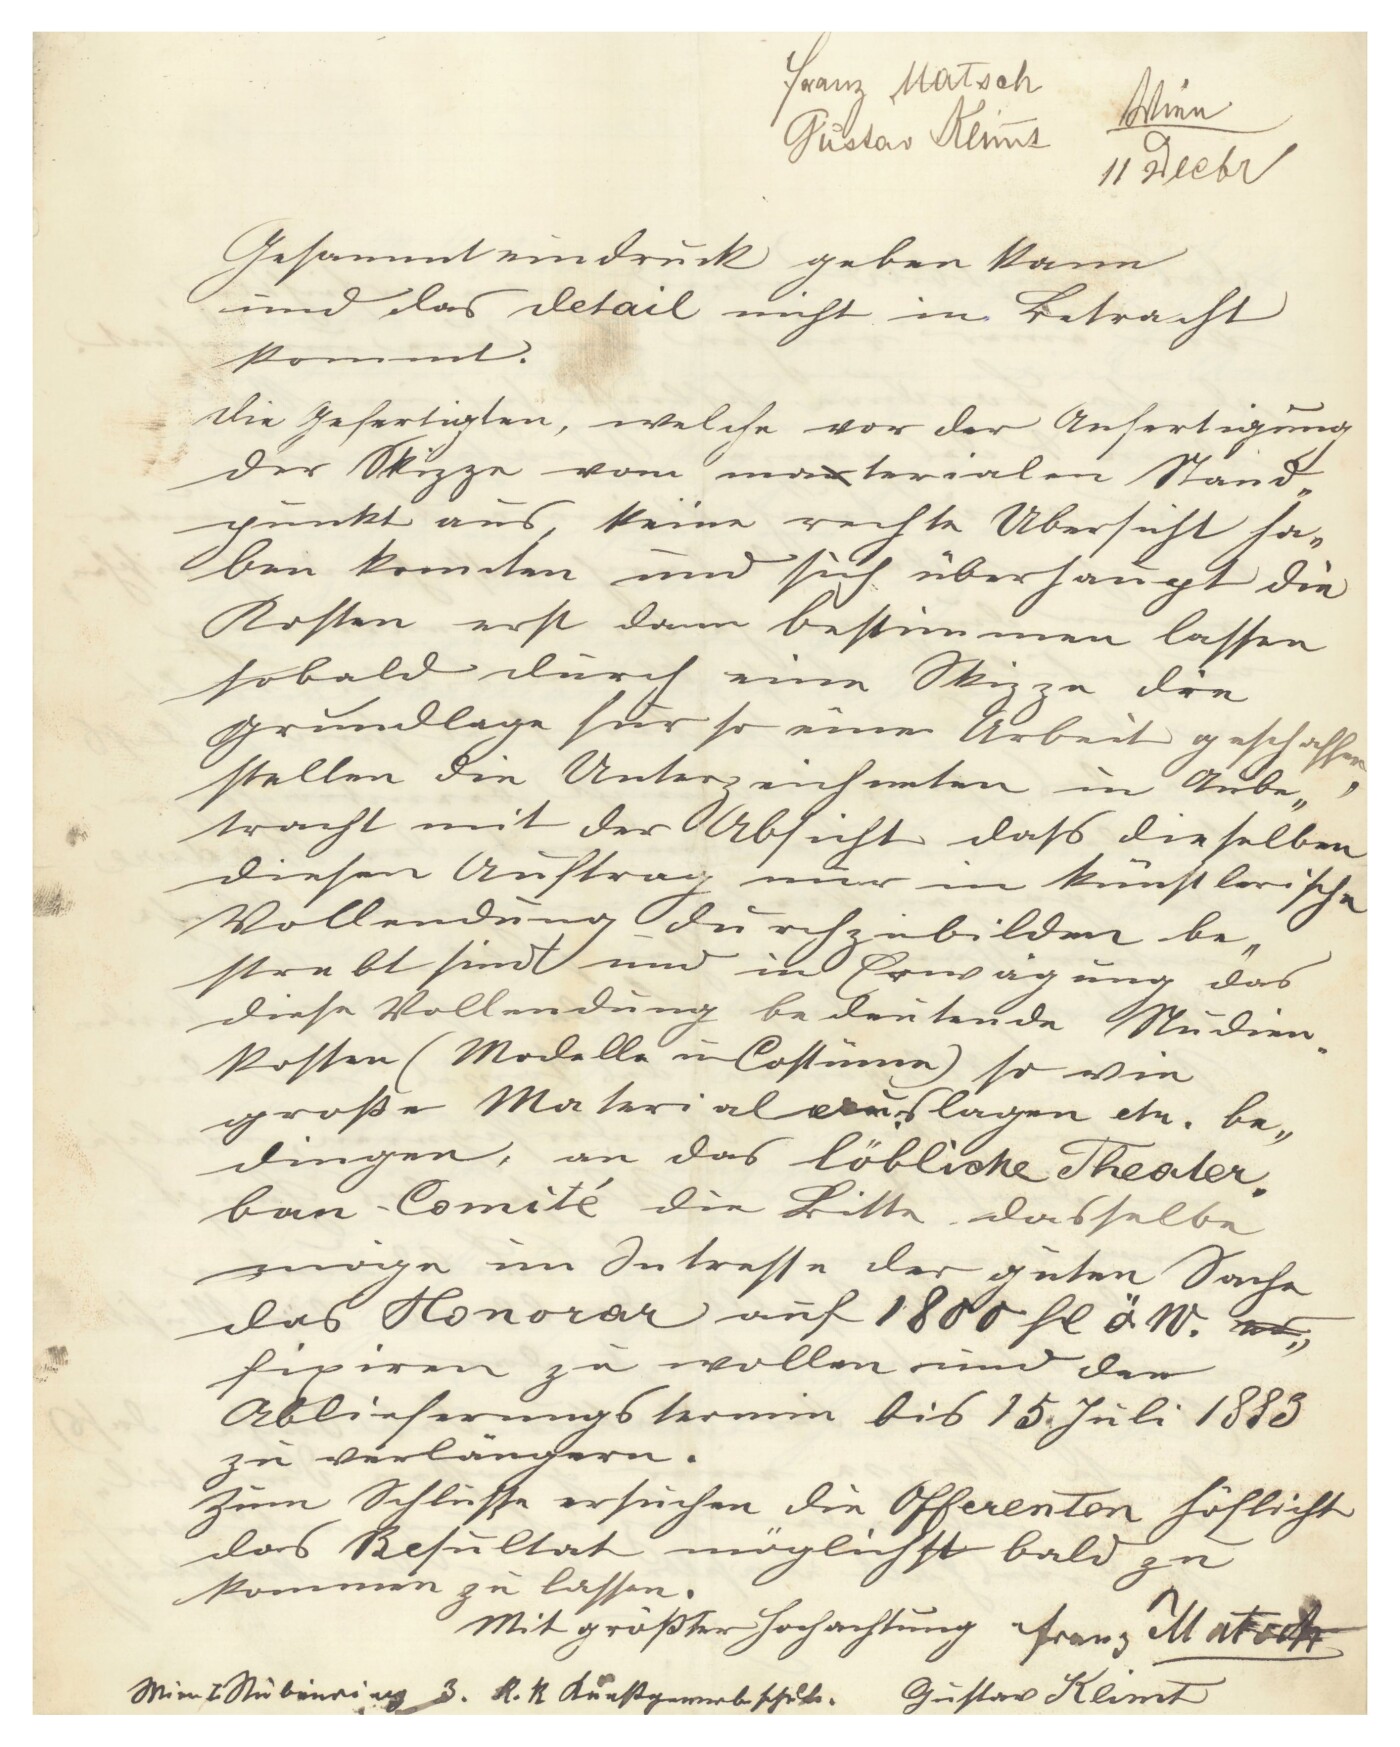 Franz Matsch
Gustav Klimt
Wien
11 Decbr
Gesammteindruck geben kann
und das Detail nicht in Betracht
kommt.
Die Gefertigten, welche vor der Anfertigung
der Skizze vom materialen Stand„
punkt aus, keine rechte Übersicht ha„
ben konnten und sich überhaupt die
Kosten erst dann bestimmen lassen
sobald durch eine Skizze die
Grundlage für so eine Arbeit geschaffen,
stellen die Unterzeichneten in Anbe„
tracht mit der Absicht daß dieselben
diesen Auftrag nur in künstlerische
Vollendung durchzubilden be„
strebt sindt und in Erwägung das
diese Vollendung bedeutende Studien-
kosten (Modelle u Costüme) so wie
große Materialauslagen etc. be„
dingen, an das löbliche Theater-
bau-Comité die Bitte dasselbe
möge im Intresse der guten Sache
das Honorar auf 1800 fl ö W.
fixiren zu wollen und den
Ablieferungstermin bis 15. Juli 1883
zu verlängern.
Zum Schluße ersuchen die Offerenten höflicht
das Resultat möglichst bald zu
kommen zu lassen.
Mit größter Hochachtung Franz Matsch
Wien I Stubenring 3. K. K Kunstgewerbeschule. Gustav Klimt